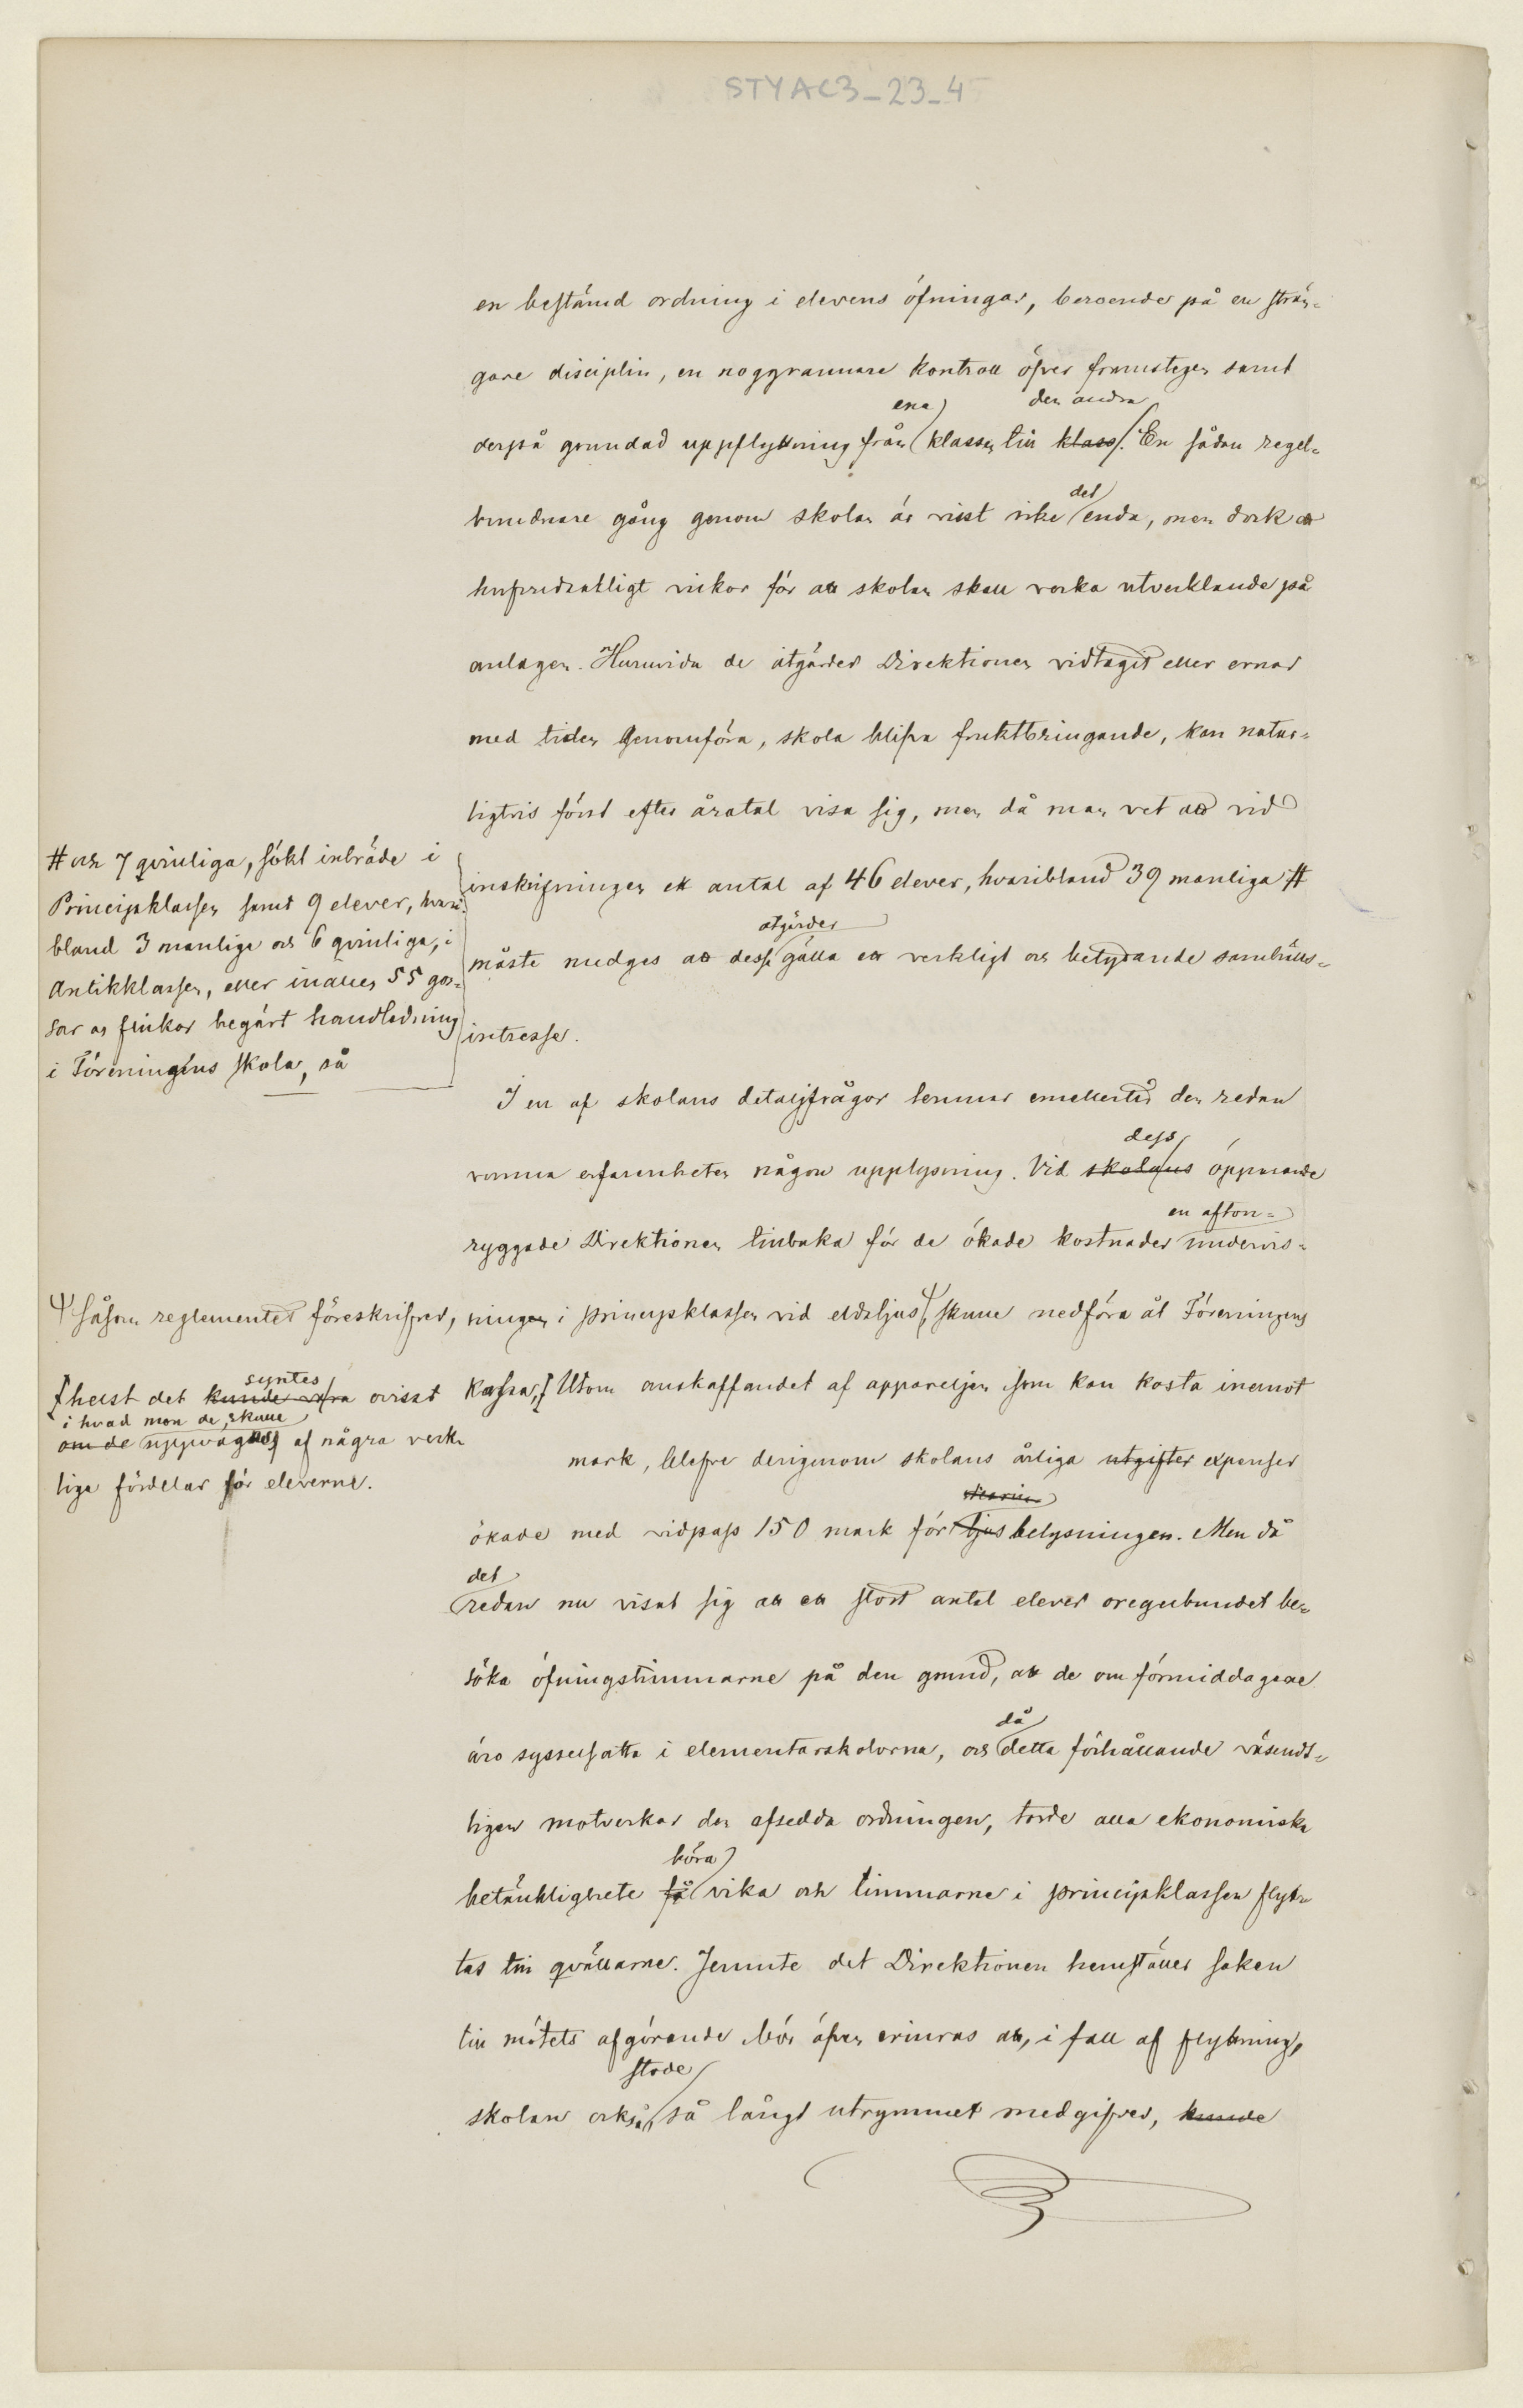 STYAC3_23_4
en bestämd ordning i elevens öfningar, beroende på en strän-
gare disciplin, en noggrannare kontroll öfver framstegen samt
ena den andra
derpå grundad uppflyttning från klassen till klass. En sådan regel-
det
bundnare gång genom skolan är visst icke enda, men dock ett
hufvudsakligt vilkor för att skolan skall verka utvecklande på
anlagen. Huruvida de åtgärder Direktionen vidtagit eller ernar
med tiden genomföra, skola blifva fruktbringande, kan natur-
ligtvis först efter åratal visa sig, men då man vet att vid
inskrifningen ett antal af 46 elever, hvaribland 39 manliga #
# och 7 qvinliga, sökt inträde i
Principklassen samt 9 elever, hvari-
bland 3 manliga och 6 qvinliga, i
Antikklassen, eller inalles 55 gos-
sar och flickor begärt handledning
i Föreningens skola, så
åtgärder
måste medges att dessa gälla ett verkligt och betydande samhälls-
intresse.
I en af skolans detaljfrågor lemnar emellertid den redan
dess
vunna erfarenheten någon upplysning. Vid skolans öppnande
en afton-
ryggade Direktionen tillbaka för de ökade kostnader undervis-
ningen i principklassen vid eldsljus, Ψ skulle medföra åt Föreningens
Ψ såsom reglementet föreskrifver,
kassa, Utom anskaffandet af apparaljen som kan kosta inemot
syntes
helst det kunde vara ovisst
i hvad mon de skulle
om de uppvägas af några verk-
liga fördelar för eleverne.
mark, blefve derigenom skolans årliga utgifter expenser
stearin
ökade med vidpass 150 mark för ljus belysningen. Men då
det
redan nu visat sig att ett stort antal elever oregelbundet be-
söka öfningstimmarne på den grund, att de om förmiddagarne
då
äro sysselsatta i elementarskolorna, och detta förhållande väsendt-
ligen motverkar den afsedda ordningen, torde alla ekonomiska
böra
betänkligheter få vika och timmarne i principklassen flyt-
tas till qvällarne. Jemnte det Direktionen hemställer saken
till mötets afgörande bör äfven erinras att, i fall af flyttning,
stode
skolan också, så långt utrymmet medgifver, kunde